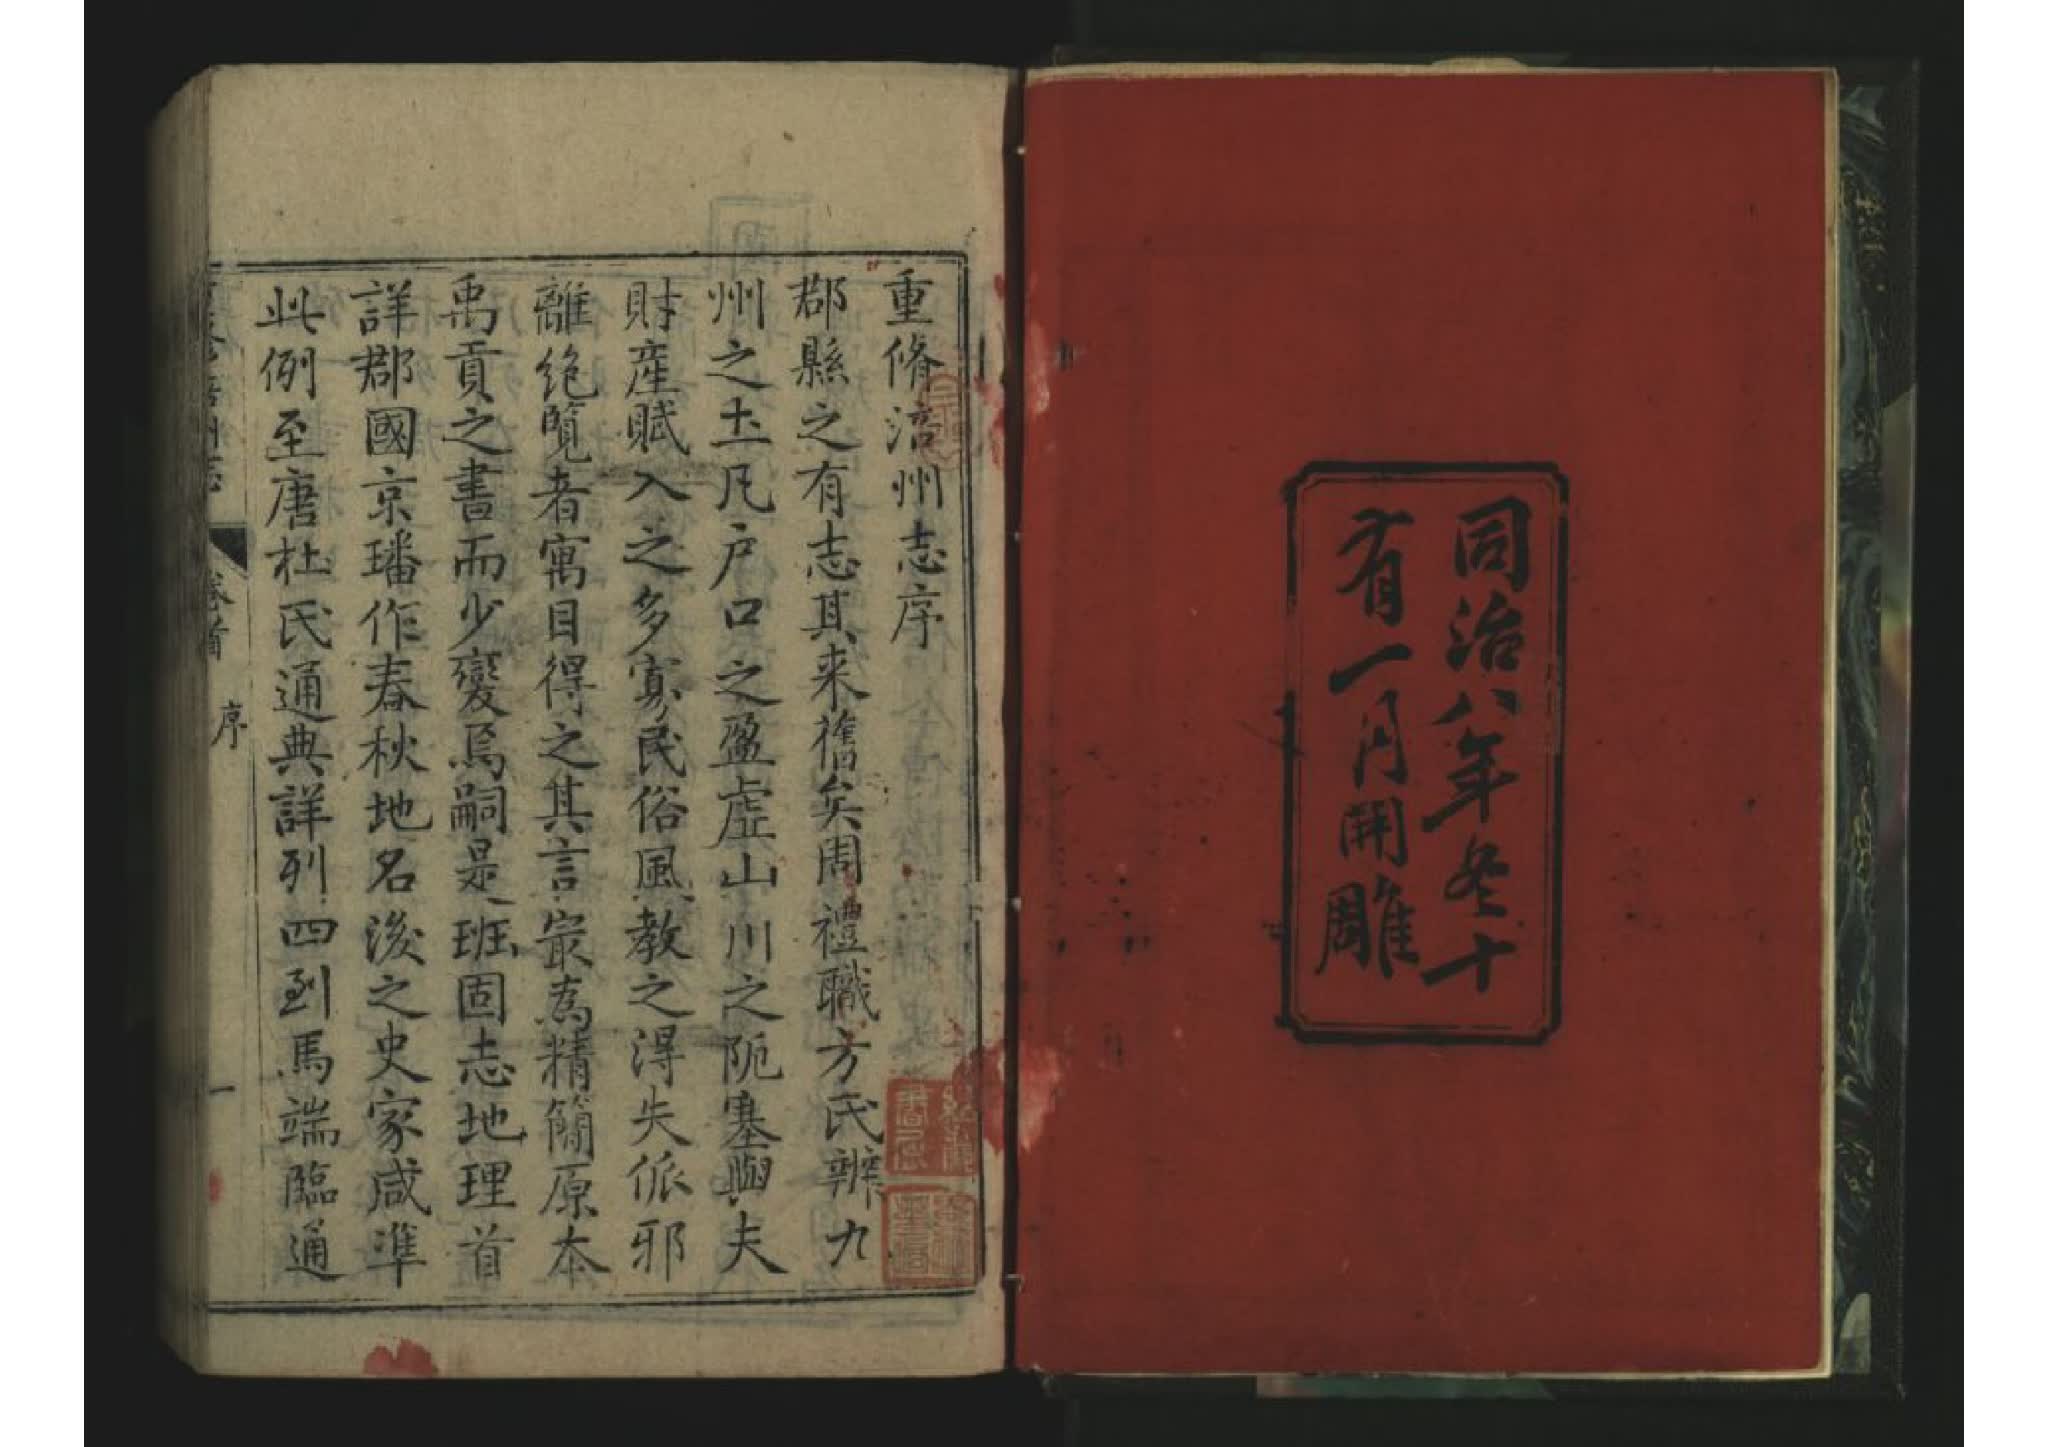 同治八年冬十
有一月開雕
重脩涪州志序
郡縣之有志其来舊矣周禮職方氏辨九
州之土凡户口之盈虛山川之阨塞與夫
財產賦入之多寡民俗風教之淂失俶邪
離絶覽者寓目得之其言㝡為精簡原本
禹貢之書而少變焉嗣是班固志地理首
詳郡國京璠作春秋地名後之史家咸準
此例至唐杜氏通典詳列四到馬端臨通
卷首
序
一